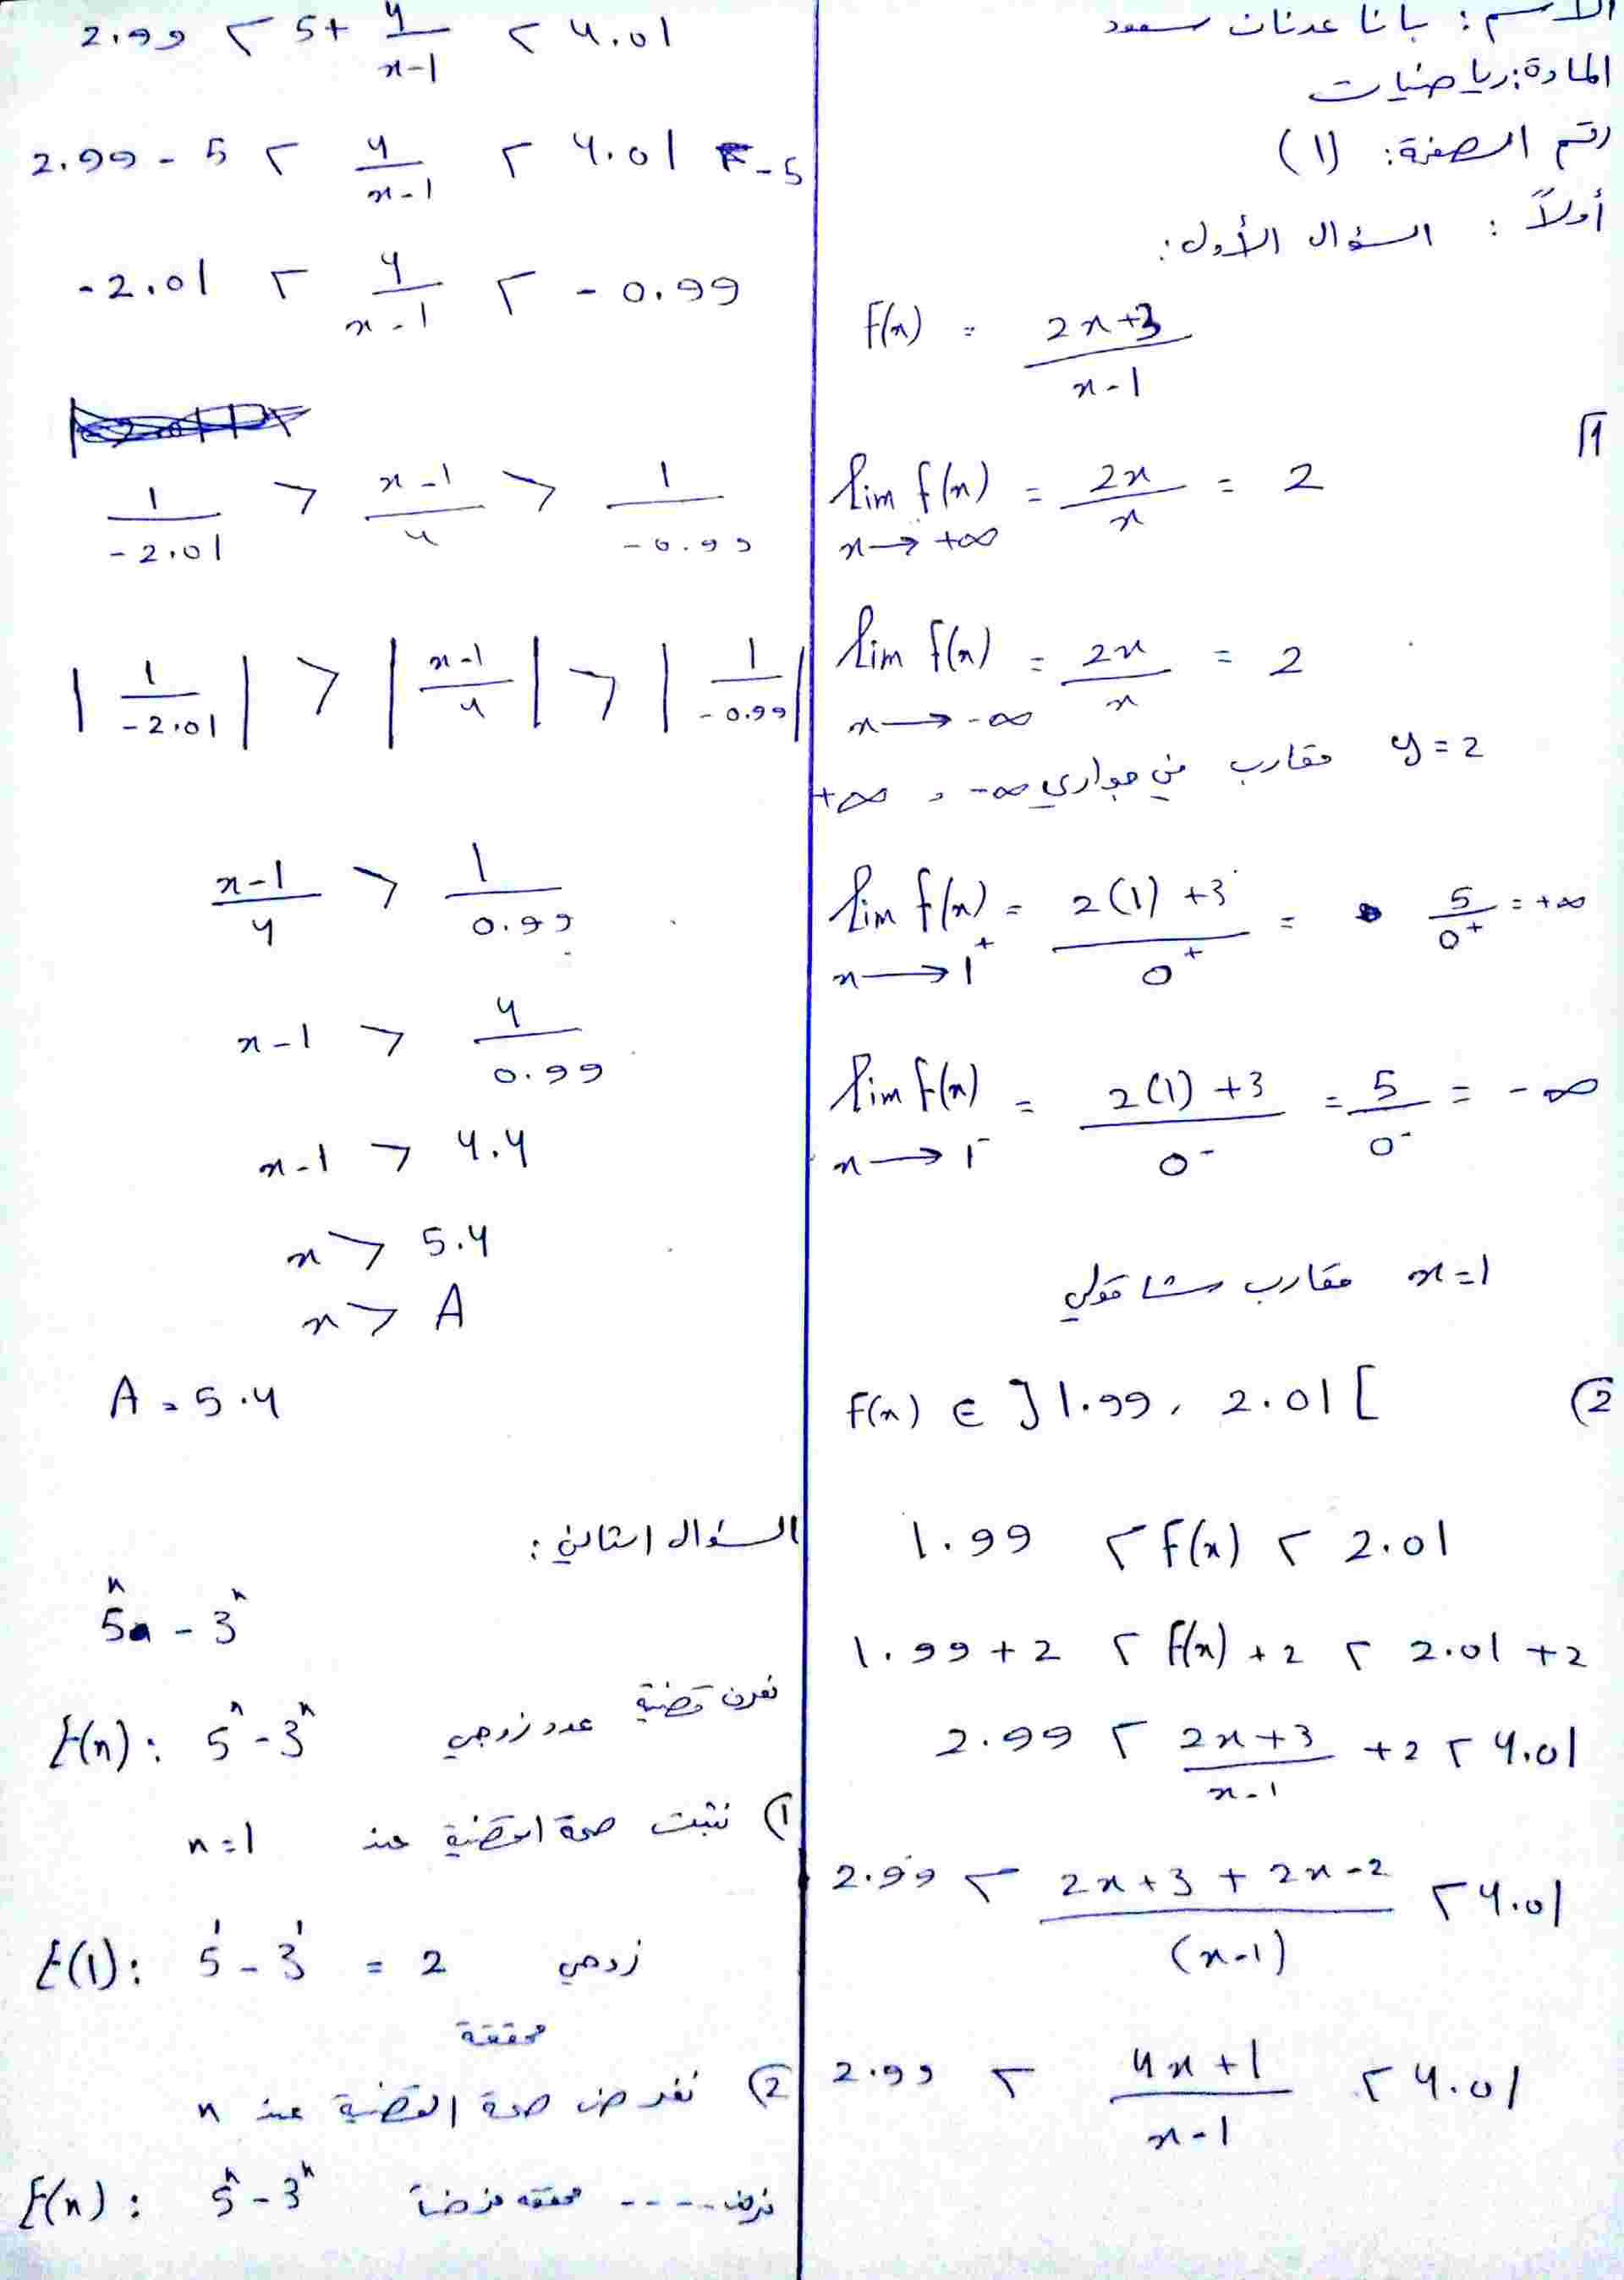 الاسم: بانا عدنان سعود
المادة: رياضيات
رقم الصفحة: (1)
أولاً: السؤال الأول:
f(x) = \frac{2x+3}{x-1}
1
\lim_{x \to +\infty} f(x) = \frac{2x}{x} = 2
\lim_{x \to -\infty} f(x) = \frac{2x}{x} = 2
y = 2 مقارب في جواري -∞ و +∞
\lim_{x \to 1^+} f(x) = \frac{2(1)+3}{0^+} = \frac{5}{0^+} = +\infty
\lim_{x \to 1^-} f(x) = \frac{2(1)+3}{0^-} = \frac{5}{0^-} = -\infty
x = 1 مقارب شاقولي
2) f(x) ∈ ]1.99, 2.01[
1.99 < f(x) < 2.01
1.99 + 2 < f(x) + 2 < 2.01 + 2
2.99 < \frac{2x+3}{x-1} + 2 < 4.01
2.99 < \frac{2x+3+2x-2}{(x-1)} < 4.01
2.99 < \frac{4x+1}{x-1} < 4.01
2.99 < 5 + \frac{4}{x-1} < 4.01
2.99 - 5 < \frac{4}{x-1} < 4.01 - 5
-2.01 < \frac{4}{x-1} < -0.99
\frac{1}{-2.01} > \frac{x-1}{4} > \frac{1}{-0.99}
|\frac{1}{-2.01}| > |\frac{x-1}{4}| > |\frac{1}{-0.99}|
\frac{x-1}{4} > \frac{1}{0.99}
x-1 > \frac{4}{0.99}
x-1 > 4.4
x > 5.4
x > A
A = 5.4
السؤال الثاني:
5^n - 3^n
نعرف قضية
E(n): 5^n - 3^n عدد زوجي
1) نثبت صحة القضية عند n=1
E(1): 5^1 - 3^1 = 2 زوجي
محققة
2) نفرض صحة القضية عند n
E(n): 5^n - 3^n ---- محققة فرضاً